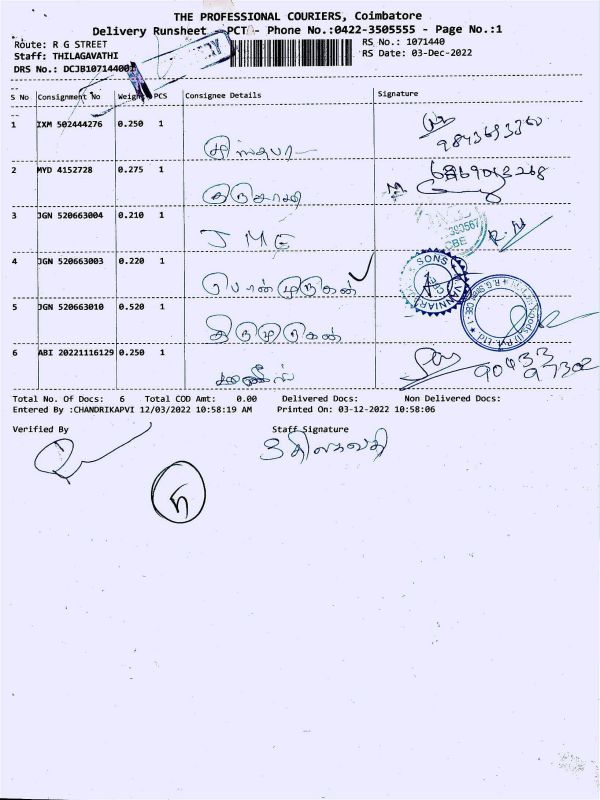 THE PROFESSIONAL COURIERS, Coimbatore
Delivery Runsheet - PCT - Phone No.:0422-3505555 - Page No.:1
Route: R G STREET RS No.: 1071440
Staff: THILAGAVATHI RS Date: 03-Dec-2022
DRS No.: DCJB107144001
S No Consignment No Weight PCS Consignee Details Signature
1 IXM 502444276 0.250 1
2 MYD 4152728 0.275 1
3 JGN 520663004 0.210 1 J M E R.M
4 JGN 520663003 0.220 1 பொன்முருகன் SONS
5 JGN 520663010 0.520 1 திருமுருகன்
6 ABI 20221116129 0.250 1 90433
97302
Total No. Of Docs: 6 Total COD Amt: 0.00 Delivered Docs: Non Delivered Docs:
Entered By :CHANDRIKAPVI 12/03/2022 10:58:19 AM Printed On: 03-12-2022 10:58:06
Verified By Staff Signature
திலகவதி